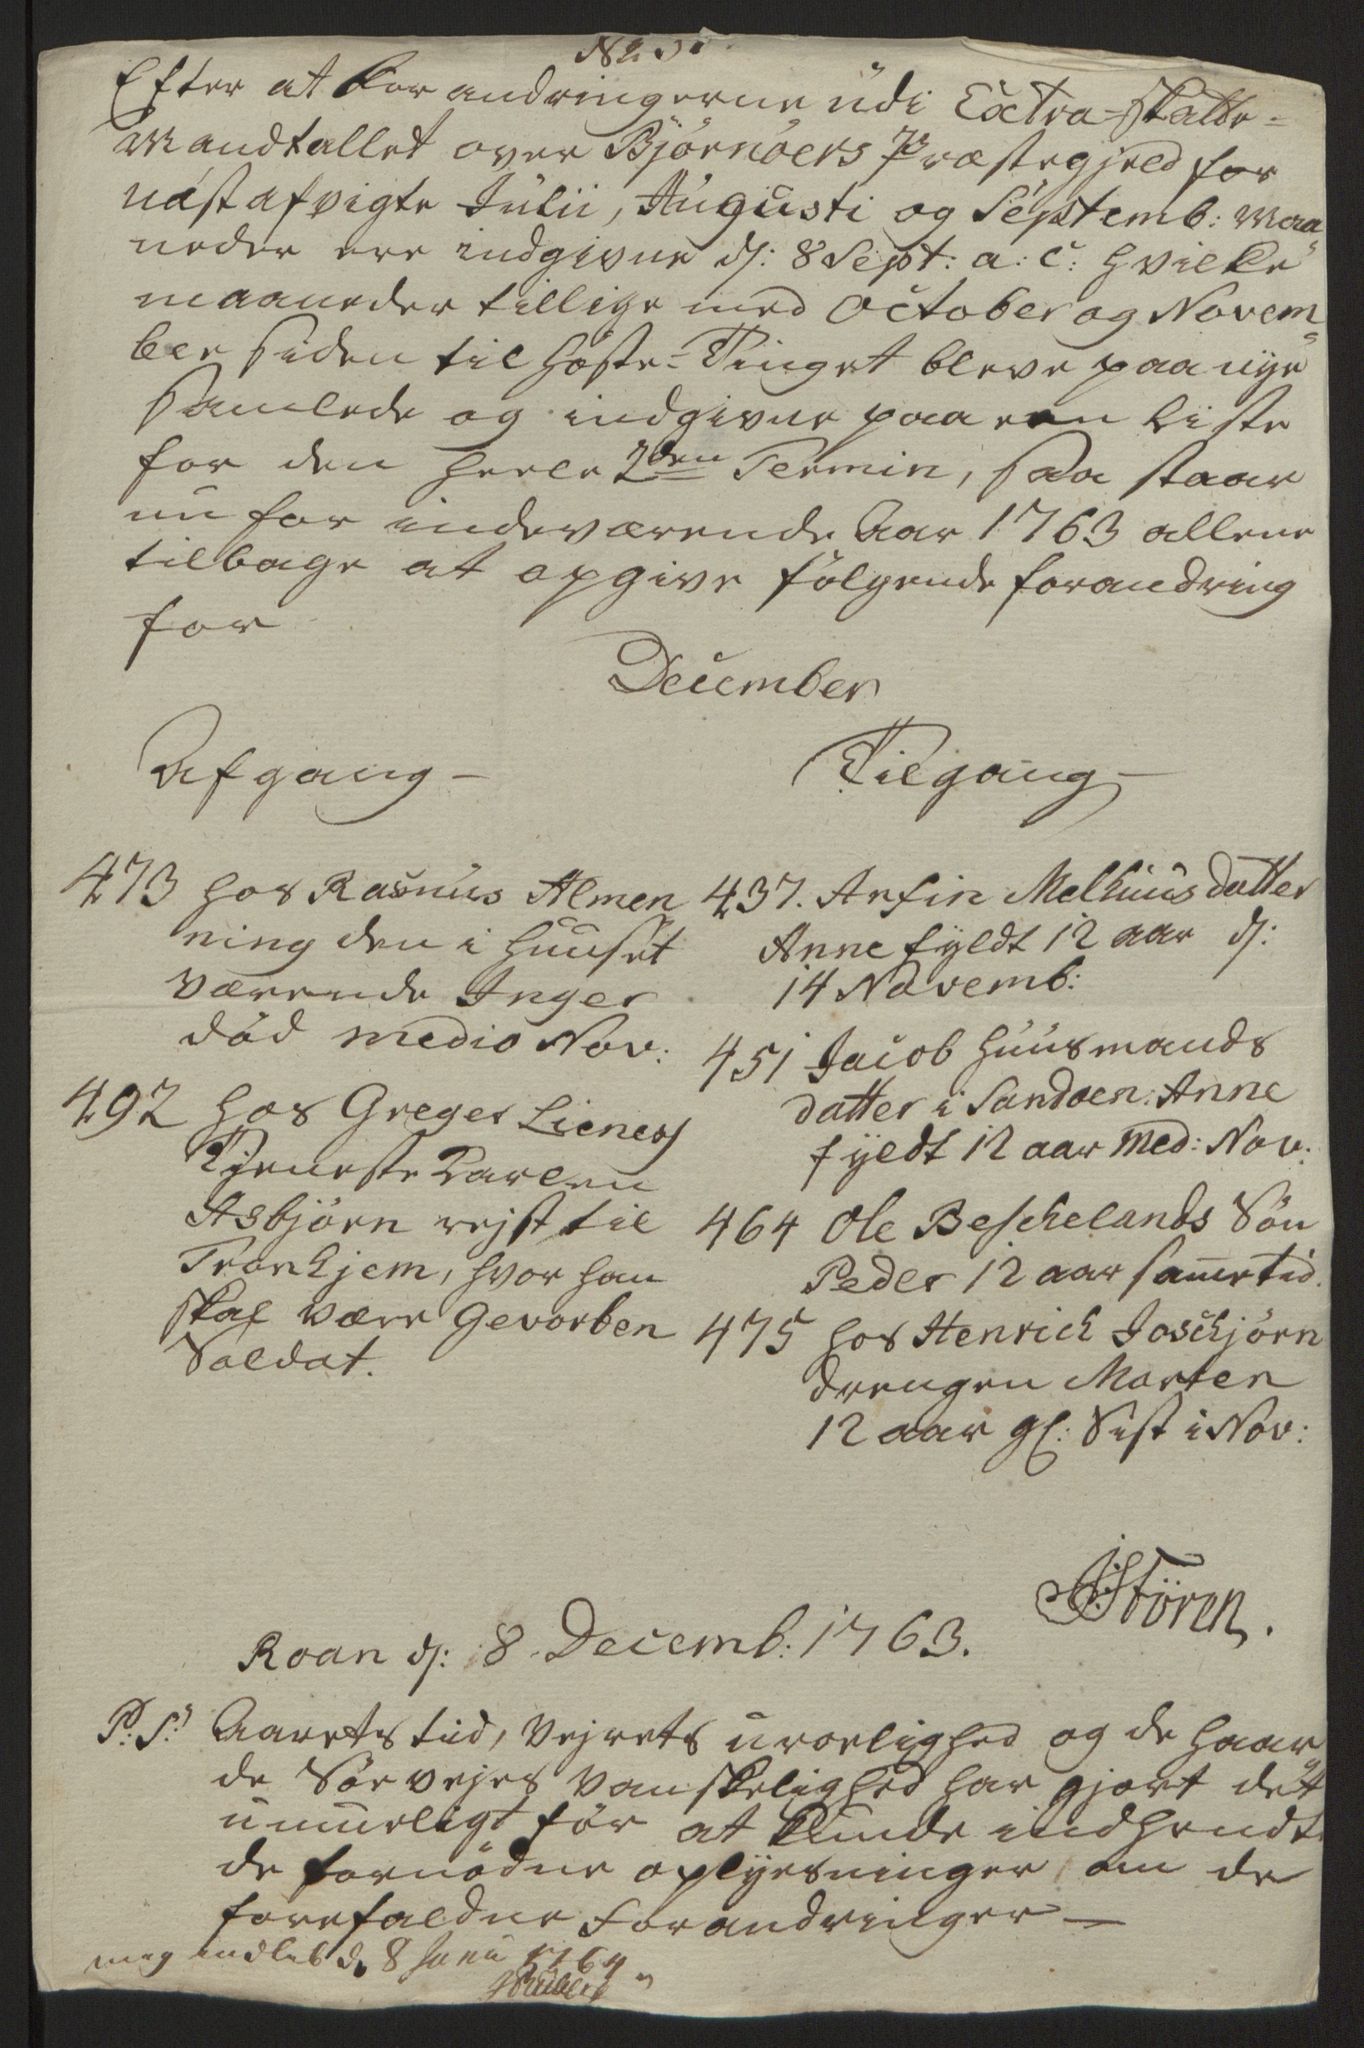 Efter at Forandringerne udi Extra-Skatte-
Mandtallet over Björnöers Præstegjeld for
næstafvigte Julii, Augusti og Septemb: Maa
neder ere indgivne d: 8 Sept: a: c: hvilke
maaneder tillige med October og Novem
ber siden til Höste-Tinget bleve paa nye
samlede og indgivne paa een Liste
for den heele 2den Termin, saa staar
nu for indeværende Aar 1763 allene
tilbage at opgive fölgende forandring
for
December
Afgang
473 hos Rasmus Almen
ning den i Huuset
værende Inger
död medio Nov:
492 hos Greger Lienes
Tjeneste Karlen
Asbjörn rejst til
Tronhjem, hvor han
skal være Gevorben
Soldat.
Tilgang
437. Arfin Melhuus datter
Anne fyldt 12 aar d:
14 Novemb:
451 Jacob Huusmands
datter i Sandöen Anne
fyldt 12 aar med: Nov:
464 Ole Beskelands Sön
Peder 12 aar samme tid.
475 hos Henrich Joschjörn
drengen Morten
12 aar gl: Sist i Nov:
Stören.
Roan d: 8 Decemb: 1763.
P: S: Aarets tiid, Vejrets uroelighed og de haar
de Söevejes Vanskelighed har gjort det
umueligt för at kunde indhendte
de fornödne oplysninger om de
forefaldne Forandringer
mig indleb d. 8 Janu 1764